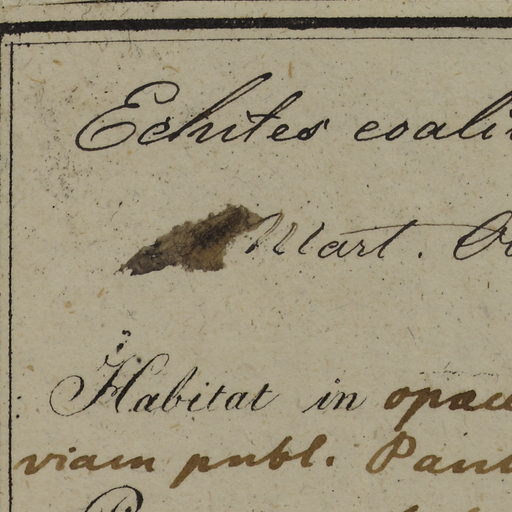 Echites coali
Mart.
Habitat in opac
viam publ. Pau